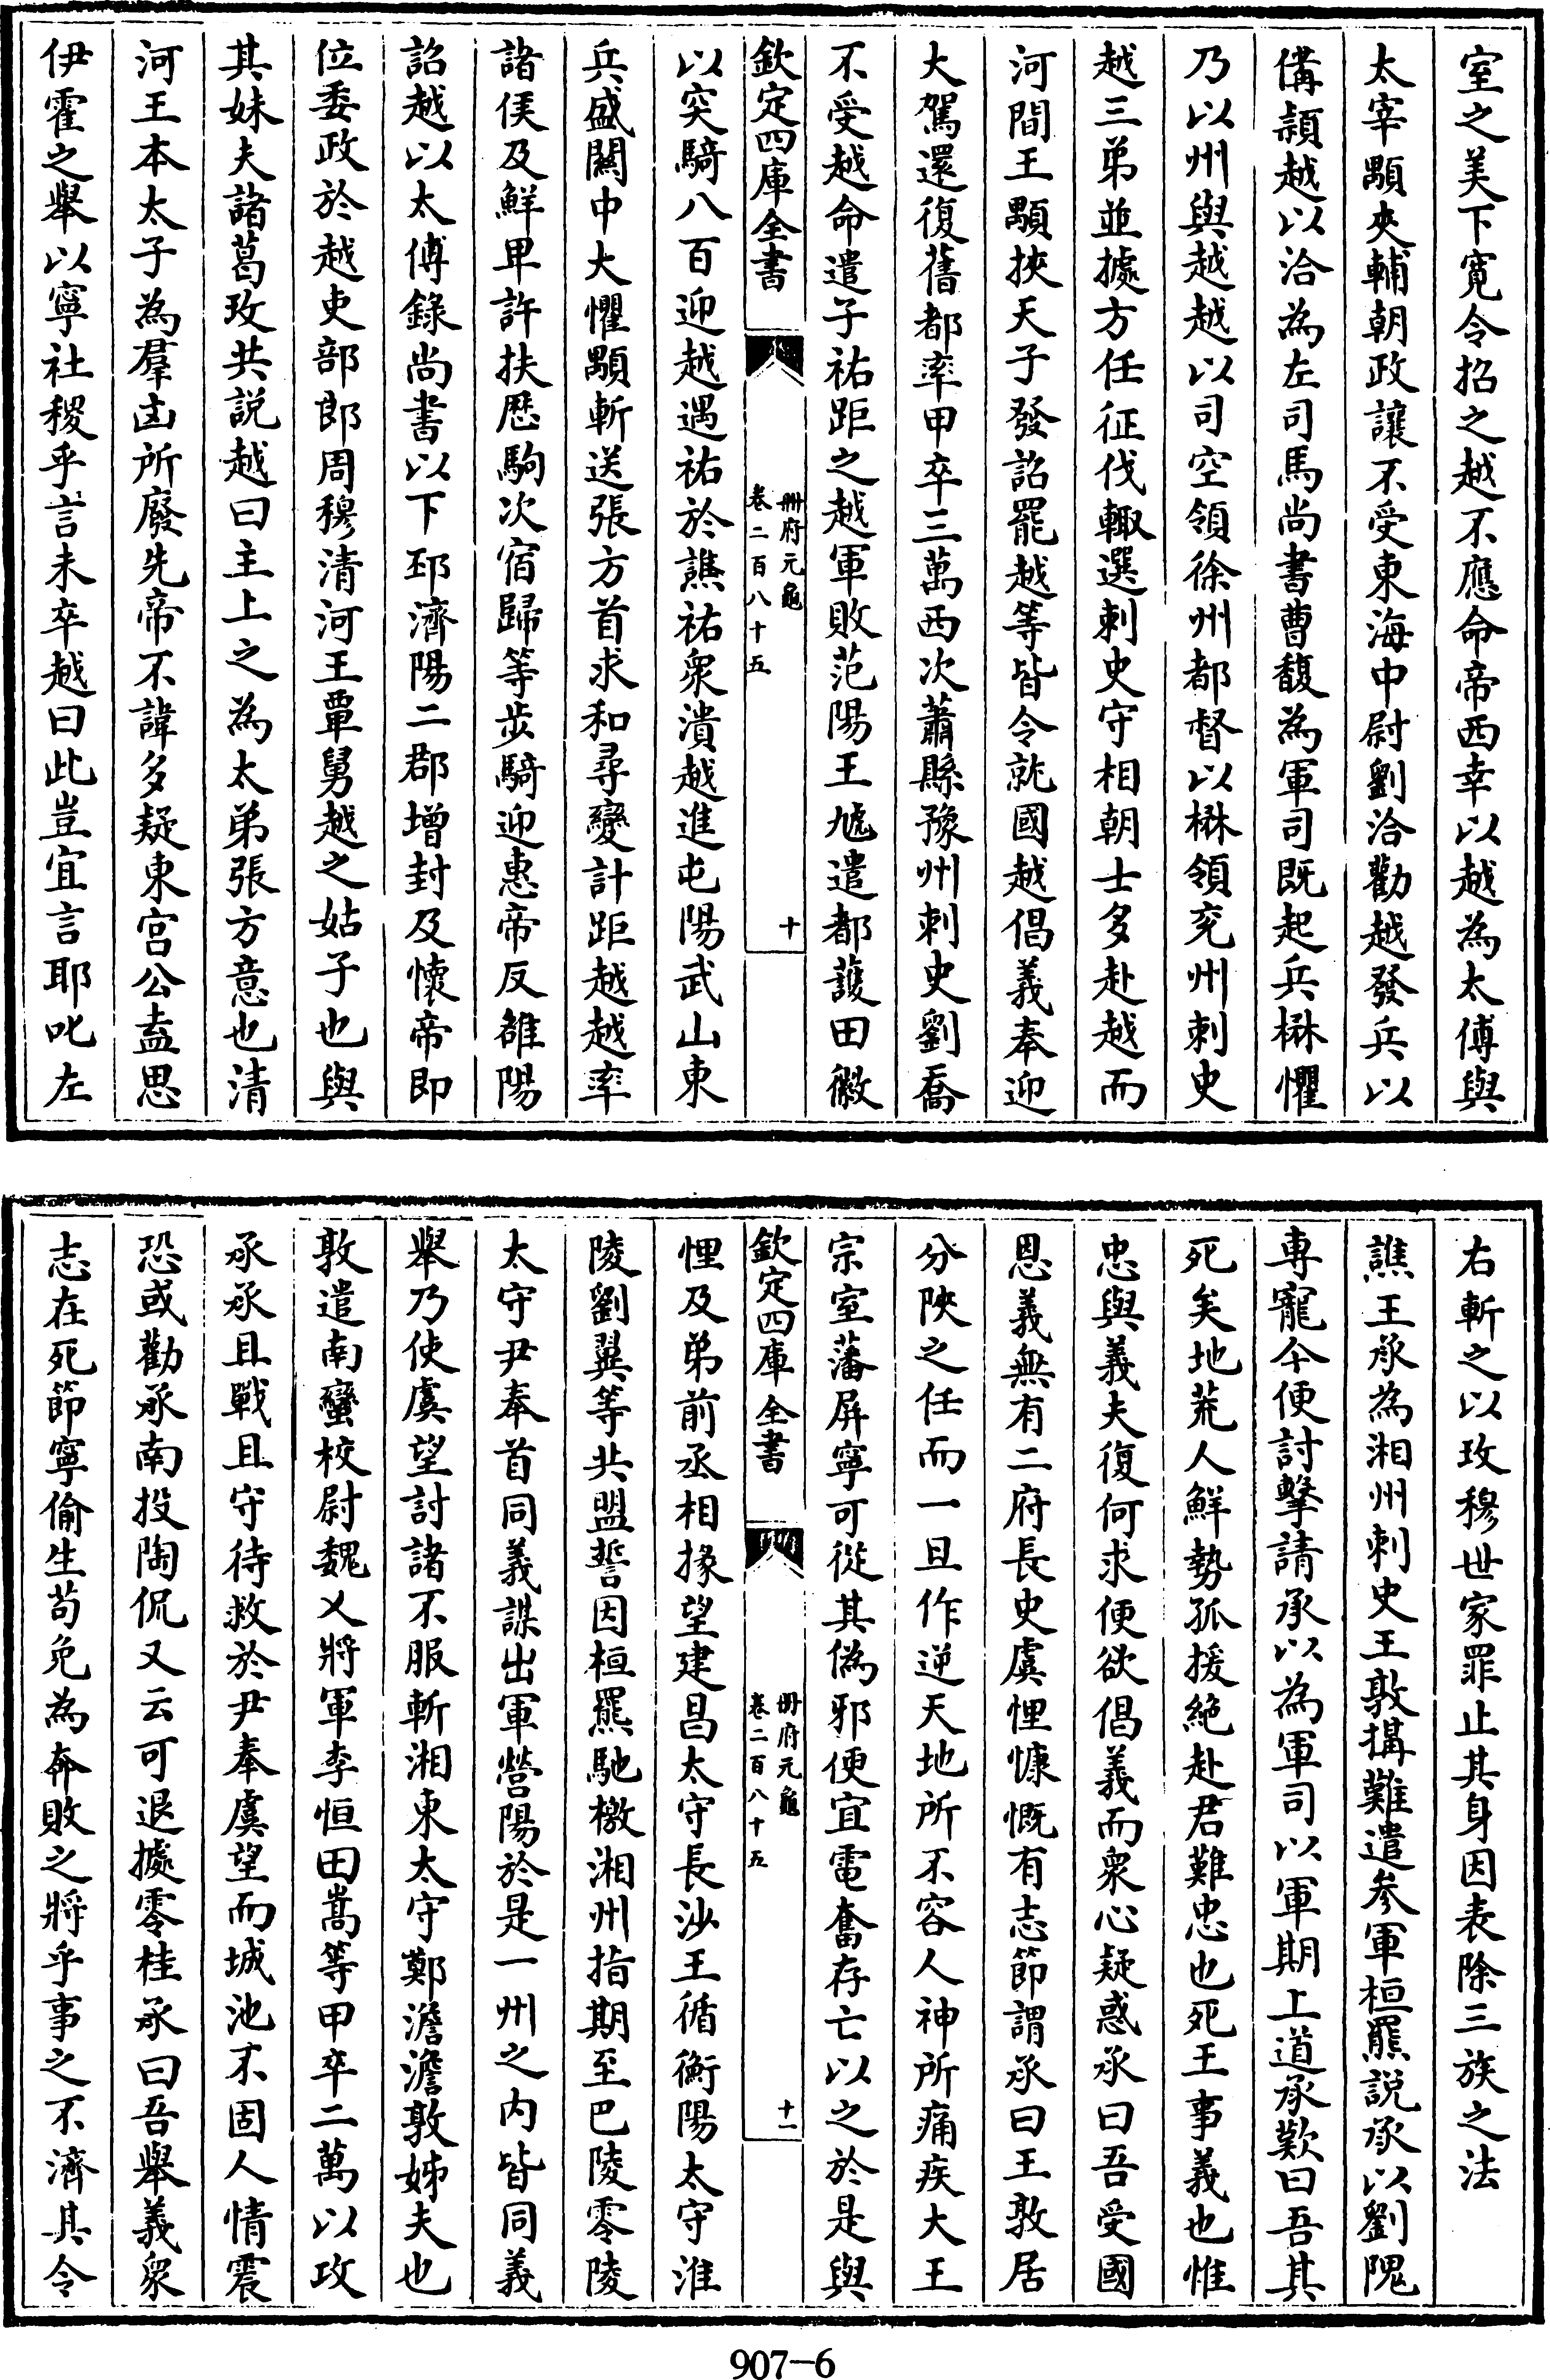 室之美下寛令招之越不應命帝西幸以越為太傅與
太宰顒夾輔朝政讓不受東海中尉劉洽勸越發兵以
偹頴越以洽為左司馬尚書曹馥為軍司既起兵楙懼
乃以州與越越以司空領徐州都督以楙領兖州刺史
越三弟並據方任征伐輙選刺史守相朝士多赴越而
河間王顒挾天子發詔罷越等皆令就國越倡義奉迎
大駕還復舊都率甲卒三萬西次蕭縣豫州刺史劉喬
不受越命遣子祐距之越軍敗范陽王虓遣都護田徽
欽定四庫全書
冊府元龜
卷二百八十五
十
以突騎八百迎越遇祐於譙祐衆潰越進屯陽武山東
兵盛闗中大懼顒斬送張方首求和尋變計距越越率
諸侯及鮮卑許扶歴駒次宿歸等步騎迎惠帝反雒陽
詔越以太傅錄尚書以下邳濟陽二郡增封及懷帝即
位委政於越吏部郎周穆清河王覃舅越之姑子也與
其妹夫諸葛玫共説越曰主上之為太弟張方意也清
河王本太子為羣凶所廢先帝不諱多疑東宫公盍思
伊霍之舉以寧社稷乎言未卒越曰此豈宜言耶叱左
右斬之以玫穆世家罪止其身因表除三族之法
譙王承為湘州刺史王敦搆難遣参軍桓羆説承以劉隗
専寵今便討擊請承以為軍司以軍期上道承歎曰吾其
死矣地荒人鮮勢孤援絶赴君難忠也死王事義也惟
忠與義夫復何求便欲倡義而衆心疑惑承曰吾受國
恩義無有二府長史虞悝慷慨有志節謂承曰王敦居
分陜之任而一旦作逆天地所不容人神所痛疾大王
宗室藩屏寧可從其偽邪便宜電奮存亡以之於是與
欽定四庫全書
冊府元龜
卷二百八十五
十一
悝及弟前丞相掾望建昌太守長沙王循衡陽太守淮
陵劉翼等共盟誓因桓羆馳檄湘州指期至巴陵零陵
太守尹奉首同義謀出軍營陽於是一州之内皆同義
舉乃使虞望討諸不服斬湘東太守鄭澹澹敦姊夫也
敦遣南蠻校尉魏乂將軍李恒田嵩等甲卒二萬以攻
承承且戰且守待救於尹奉虞望而城池不固人情震
恐或勸承南投陶侃又云可退據零桂承曰吾舉義衆
志在死節寧偷生茍免為奔敗之將乎事之不濟其令
907-6